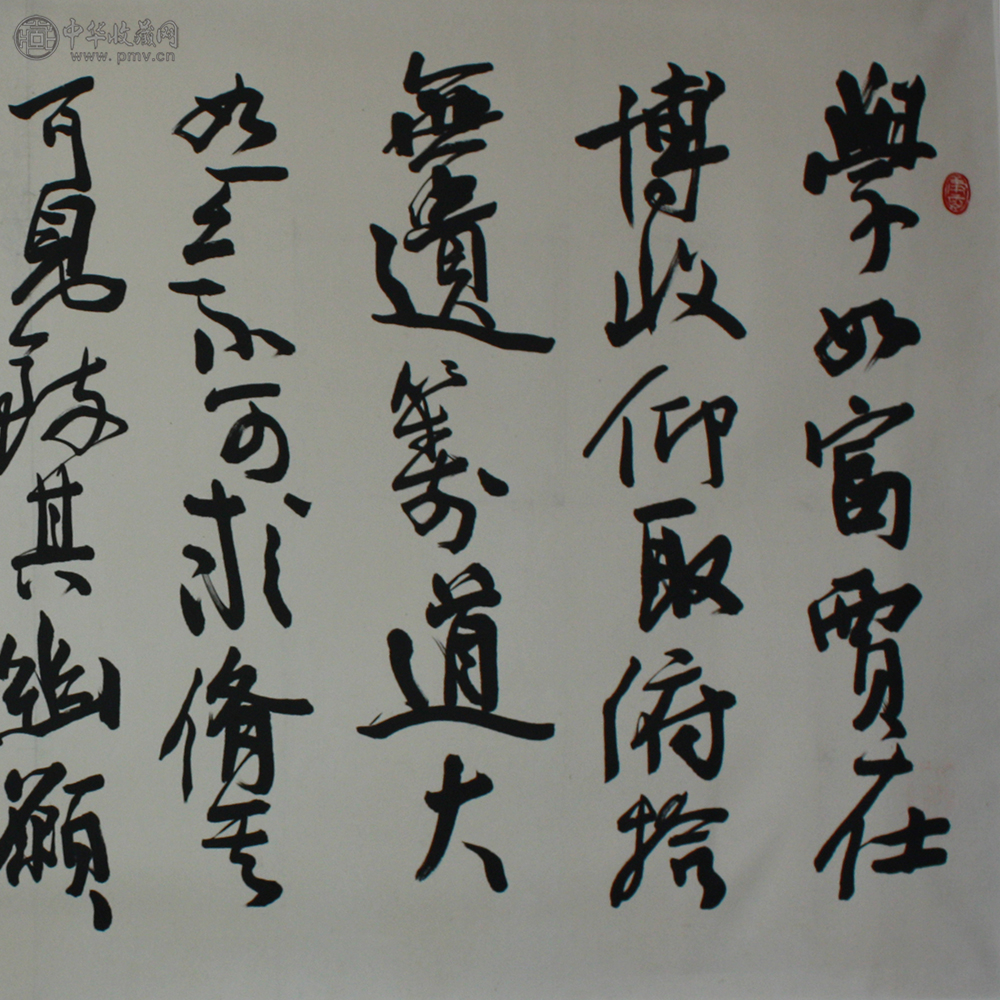 中华收藏网
www.pmv.cn
學如富賈在
博收仰取俯拾
無遺籌道大
如天不可求脩其
可見致其幽願